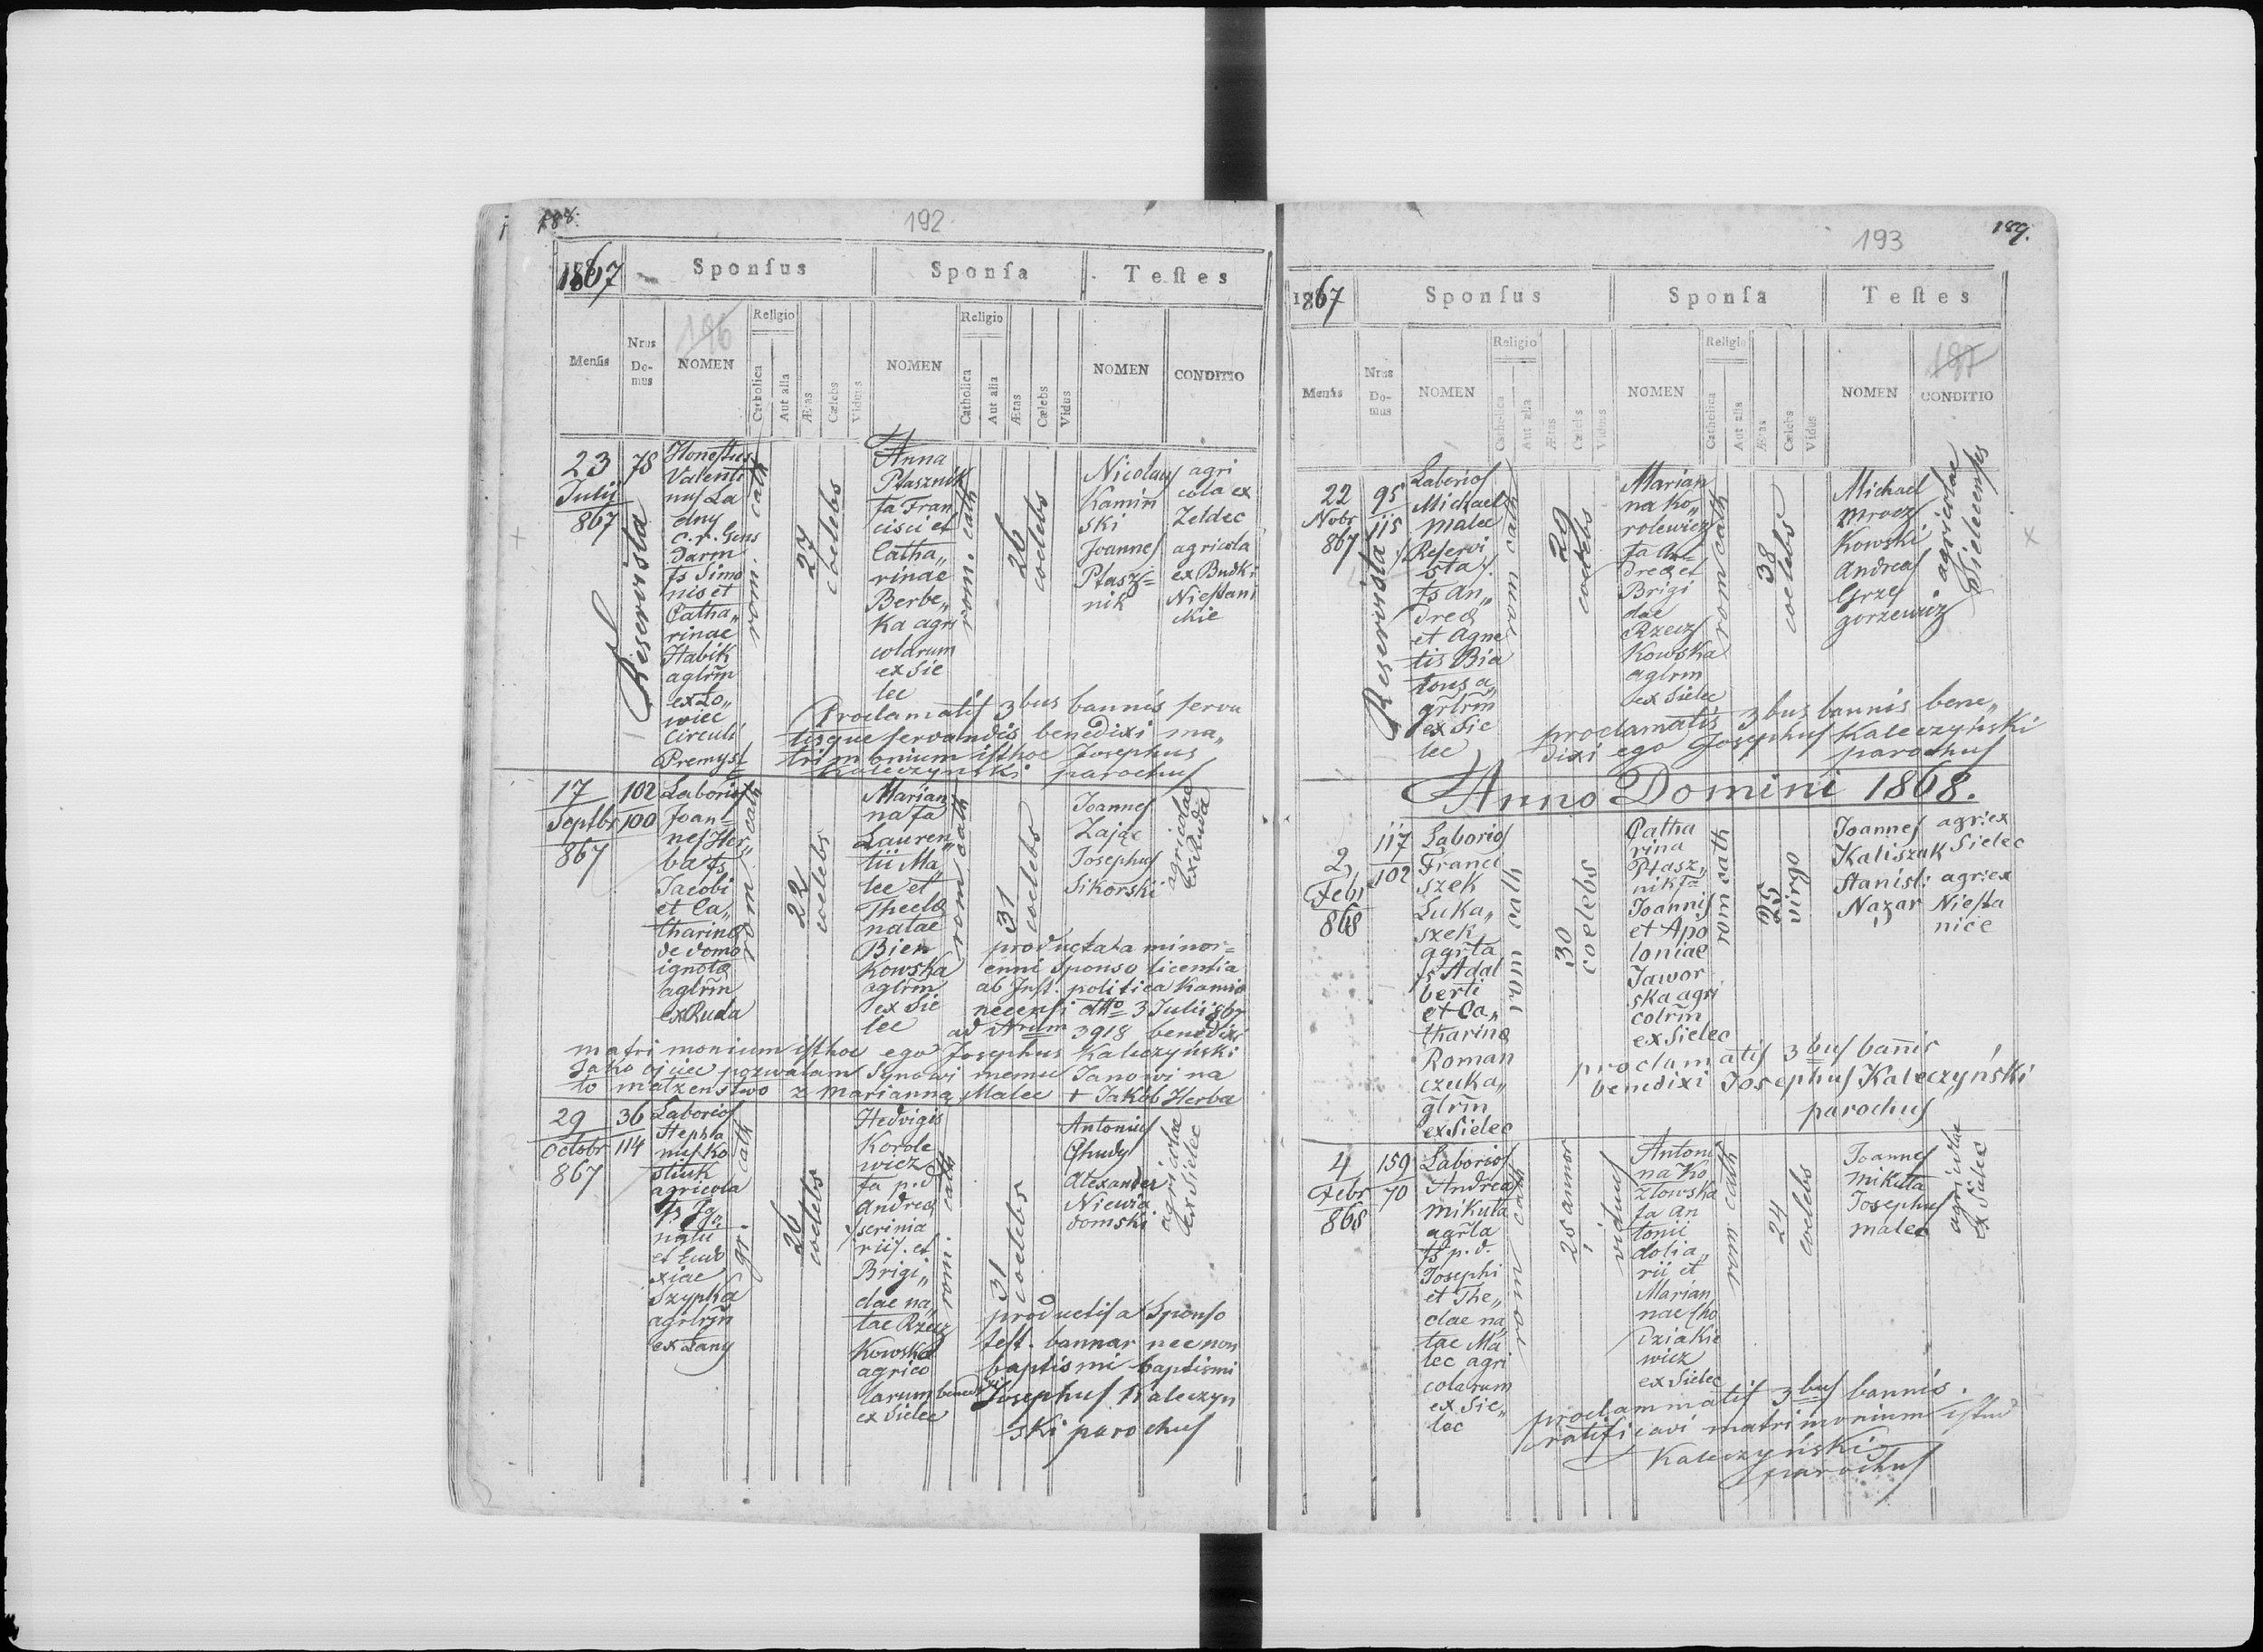 188.
192
1867
Sponſus
Sponſa
Teſtes
196
Menſis
Nrus Domus
NOMEN
Religio
Catholica
Aut alia
Ætas
Cælebs
Vidus
NOMEN
Religio
Catholica
Aut alia
Ætas
Cælebs
Vidus
NOMEN
CONDITIO
23
Julij
867
78
Reservista
Honestus
Valenti
nus La
dny
c. r. Gens
darm
fs Simo
nis et
Catha„
rinae
Habik
aglrm
ex Ło„
wiec
Circuli
Premysl
rom. cath
27
coelebs
Anna
Ptasznik
fa Fran
cisci et
Catha„
rinae
Berbe„
ka agri
colarum
ex Sie
lec
rom. cath
26
coelebs
Nicolaus
Kamiń
ski
Joannes
Ptasz=
nik
agri
cola ex
Zeldec
agricola
ex Budki
Niestani
ckie
Proclamatis 3bus bannis serva
tisque servandis benedixi ma„
trimonium isthoc Josephus
Kaleczyński parochus
17
Septbr
867
102
100
Laborios
Joan=
nes Her„
ba fs
Jacobi
et Ca„
tharina
de domo
ignota
aglrm
ex Ruda
rom. cath
22
coelebs
Marian
na fa
Lauren„
tii Ma„
lec et
Thecla
natae
Bien
kowska
aglrm
ex Sie
lec
rom cath
31
coelebs
Joannes
Zając
Josephus
Sikorski
agricolae
ex Ruda
producta a minor=
enni Sponso licentia
ab Inst. politica Kamio
necensi dtto 3 Julii 867
ad Nrum 3918 benedixi
matrimonium isthoc ego Josephus Kaleczyński
Jako ojciec pozwalam Synowi memu Janowi na
to małżenstwo z Marianną Malec + Jakób Herba
29
Octobr
867
36
114
Laborios
Stepha
nus Ko
stiuk
agricola
fs Ig„
natii
et Eudo
xiae
Szypka
agrlrm
ex Łany
gr. cath
26
coelebs
Hedvigis
Korole
wicz
fa p. d
Andrea
scrinia
rii. et
Brigi„
dae na„
tae Rzecz
kowska
agrico
larum
ex Sielec
rom. cath
31
coelebs
Antonius
Chudy
Alexander
Niewia
domski
agricolae
ex Sielec
productis a Sponso
test. bannar nec non
baptismi baptismi
benedixi Josephus Kaleczyn
ski parochus
193
189.
1867
Sponſus
Sponſa
Teſtes
197
Menſis
Nrus Domus
NOMEN
Religio
Catholica
Aut alia
Ætas
Cælebs
Vidus
NOMEN
Religio
Catholica
Aut alia
Ætas
Cælebs
Vidus
NOMEN
CONDITIO
22
Nobr
867
95
115
Reservista
Laborios
Michael
Malec
Reservi
sta
fs An„
drea
et Agne
tis Bia
tous a„
grlrm
ex Sie
lec
rom cath
29
coelebs
Marian
na Ko„
rolewicz
fa An
drea et
Brigi
dae
Rzecz
kowska
aglrm
ex Sielec
rom cath
38
coelebs
Michael
Mrocz
kowski
Andreas
Grze
gorzewicz
agricolae
Sielecenses
proclamatis 3bus bannis bene„
dixi ego Josephus Kaleczyński
parochus
Anno Domini 1868.
2
Febr
868
117
102
Laborios
Franci
szek
Luka„
szek
agrla
fs Adal
berti
et Ca„
tharina
Roman
czuk a„
glrm
ex Sielec
rom cath
30
coelebs
Catha
rina
Ptasz„
nik fa
Joannis
et Apo
loniae
Jawor
ska agri
colrm
ex Sielec
rom cath
25
virgo
Joannes
Kaliszuk
Stanisl:
Nazar
agr: ex
Sielec
agr: ex
Niesta
nice
proclamatis 3bus bannis
benedixi Josephus Kaleczyński
parochus
4
Febr
868
159
70
Laborios
Andreas
Mikuta
agrla
fs p. d.
Josephi
et The„
clae na„
tae Ma
lec agri
colarum
ex Sie„
lec
rom cath
25 annor
viduus
Antoni
na Ko
zlowska
fa An
tonii
dolia„
rii et
Marian
nae Cho
dziakie
wicz
ex Sielec
rom cath
24
coelebs
Joannes
Mikuta
Josephus
Malec
agricolae
ex Sielec
proclammatis 3bus bannis.
ratificavi matrimonium istud
Kaleczyński
parochus